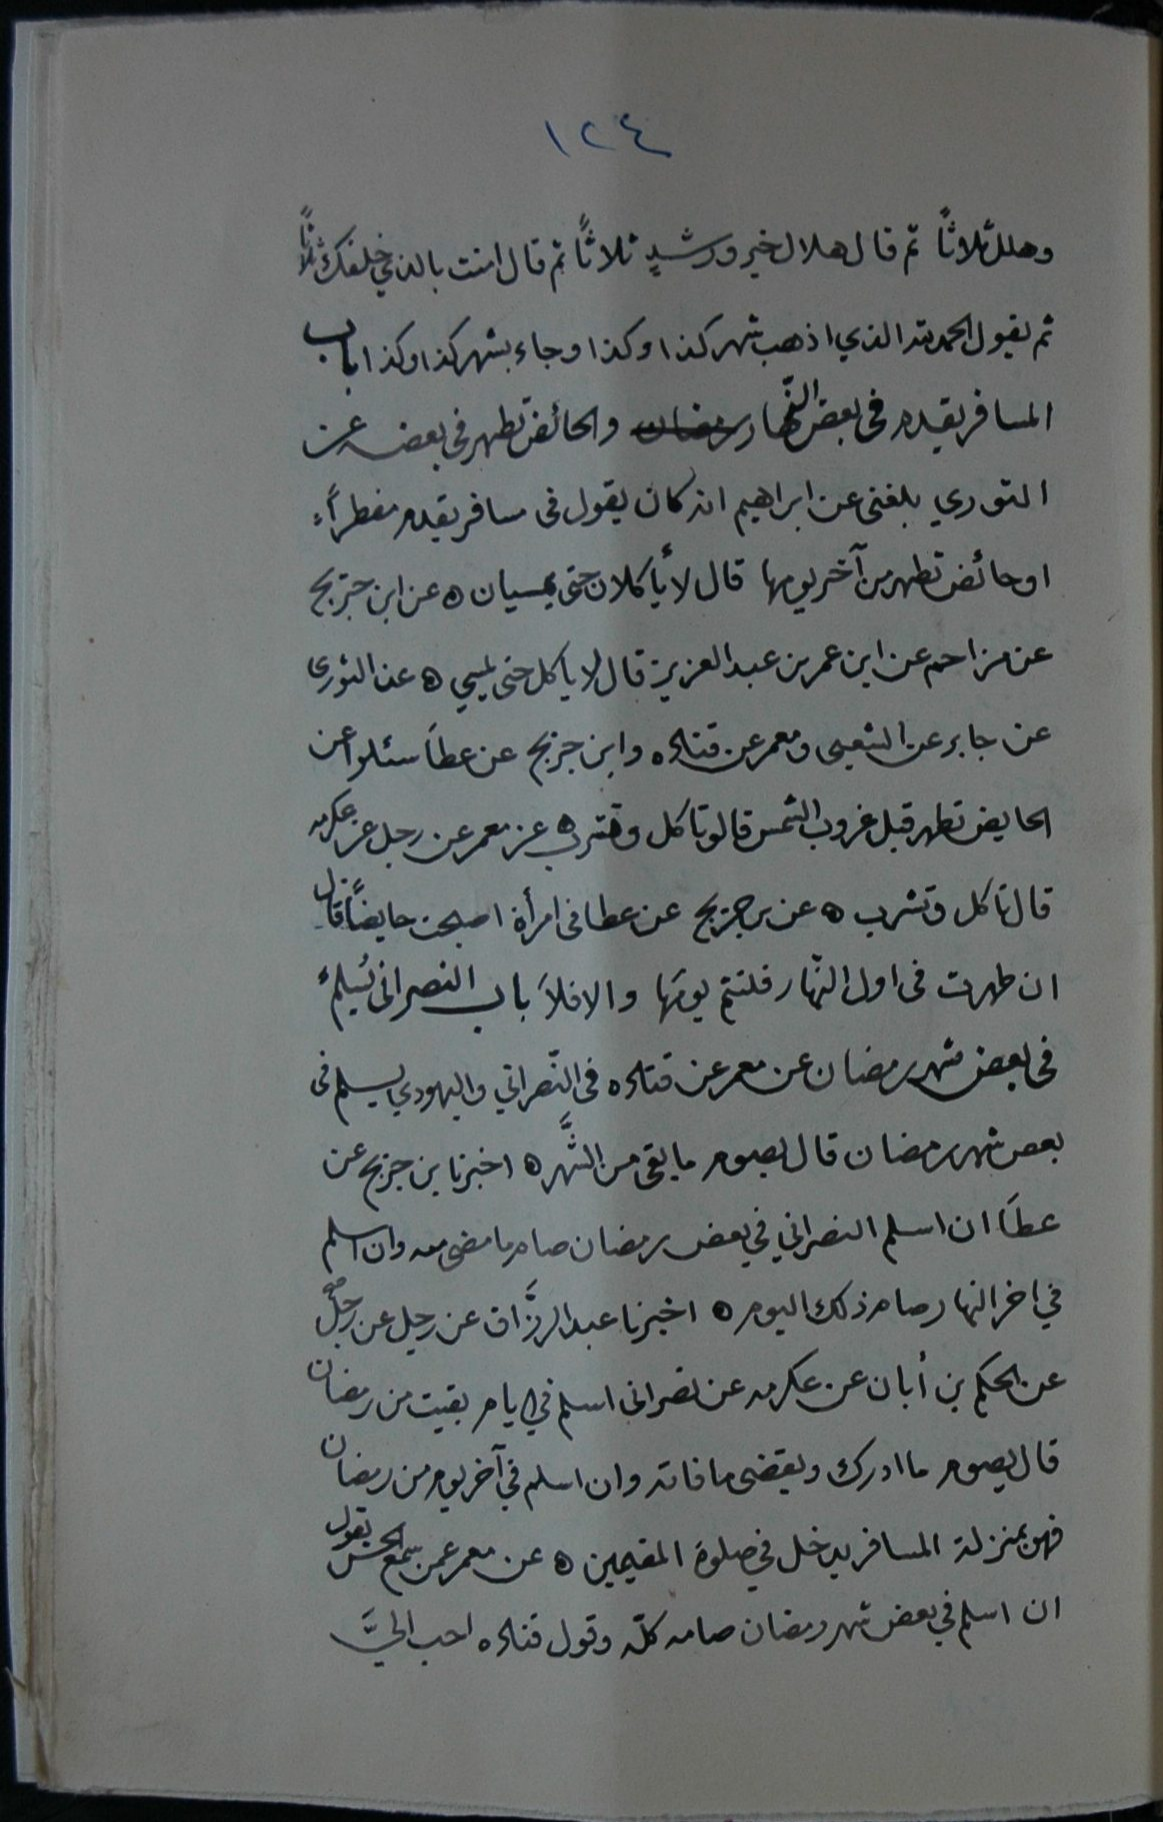 ١٢٤
وهلل ثلاثاً ثم قال هلال خير ورشدٍ ثلاثاً ثم قال امنت بالذي خلقك ثلاثاً
ثم يقول الحمد لله الذي اذهب شهر كذا وكذا وجاء بشهر كذا وكذا باب
المسافر يقدم فى بعض النّهار رمضان والحائض تطهر فى بعضه عن
الثوري بلغنى عن ابراهيم انه كان يقول فى مسافر يقدم مفطراً
او حائض تطهر من آخر يومها قال لا يأكلان حتى يمسيان ه عن ابن جريج
عن مزاحم عن ابن عمر بن عبد العزيز قال لا ياكل حتى يمسي ه عن الثورى
عن جابر عن الشعبى ومعمر عن قتاده وابن جريج عن عطاَ سئلوا عن
الحايض تطهر قبل غروب الشمس قالو تاكل وتشرب ه عن معمر عن رجل عن عكرمه
قال تاكل وتشرب ه عن بن جريج عن عطا فى امرأة اصبحت حايضاً قال
ان طهرت فى اول النّهار فلتتم يومَها والا فلاَ باب النصرانى يُسلمُ
فى بعض شهر رمضان عن معمر عن قتاده فى النّصراني واليهودي يسلم فى
بعض شهر رمضان قال يصوم ما بقى من الشَّهر ه اخبرنا بن جريج عن
عطاَ ان اسلم النصراني في بعض رمضان صام ما مضى معه وان اسلم
في اخر النهار صام ذلك اليوم ه اخبرنا عبد الرزَّاق عن رجل عن رجل
عن الحكم بن أبان عن عكرمه عن نصرانى اسلم في ايام بقيت من رمضان
قال يصوم ما ادرك ويقضى ما فاته وان اسلم في آخر يوم من رمضان
فهو بمنزلة المسافر يدخل في صلوة المقيمين ه عن معمر عمن سمع الحسن يقول
ان اسلم في بعض شهر رمضان صامه كلّه وقول قتاده احب اليَّ